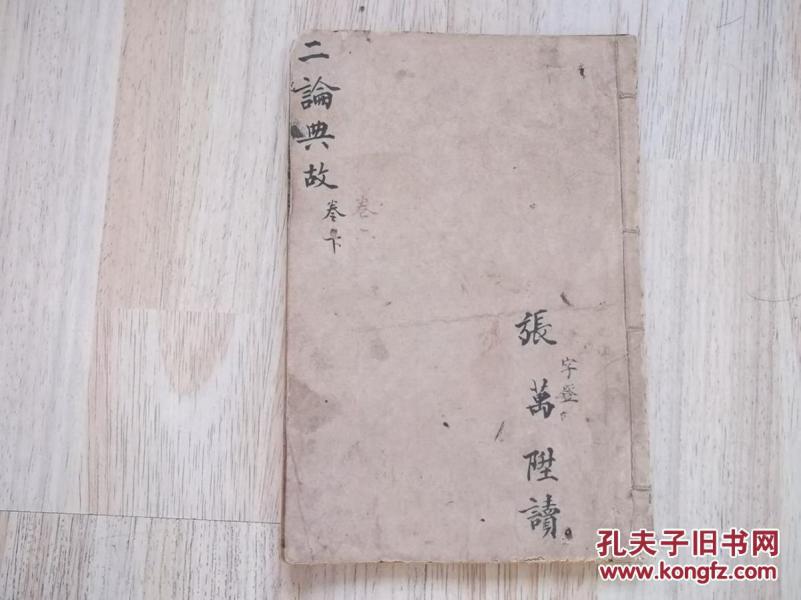 二論典故
卷下
卷
張萬陞讀
字登
孔夫子旧书网
www.kongfz.com